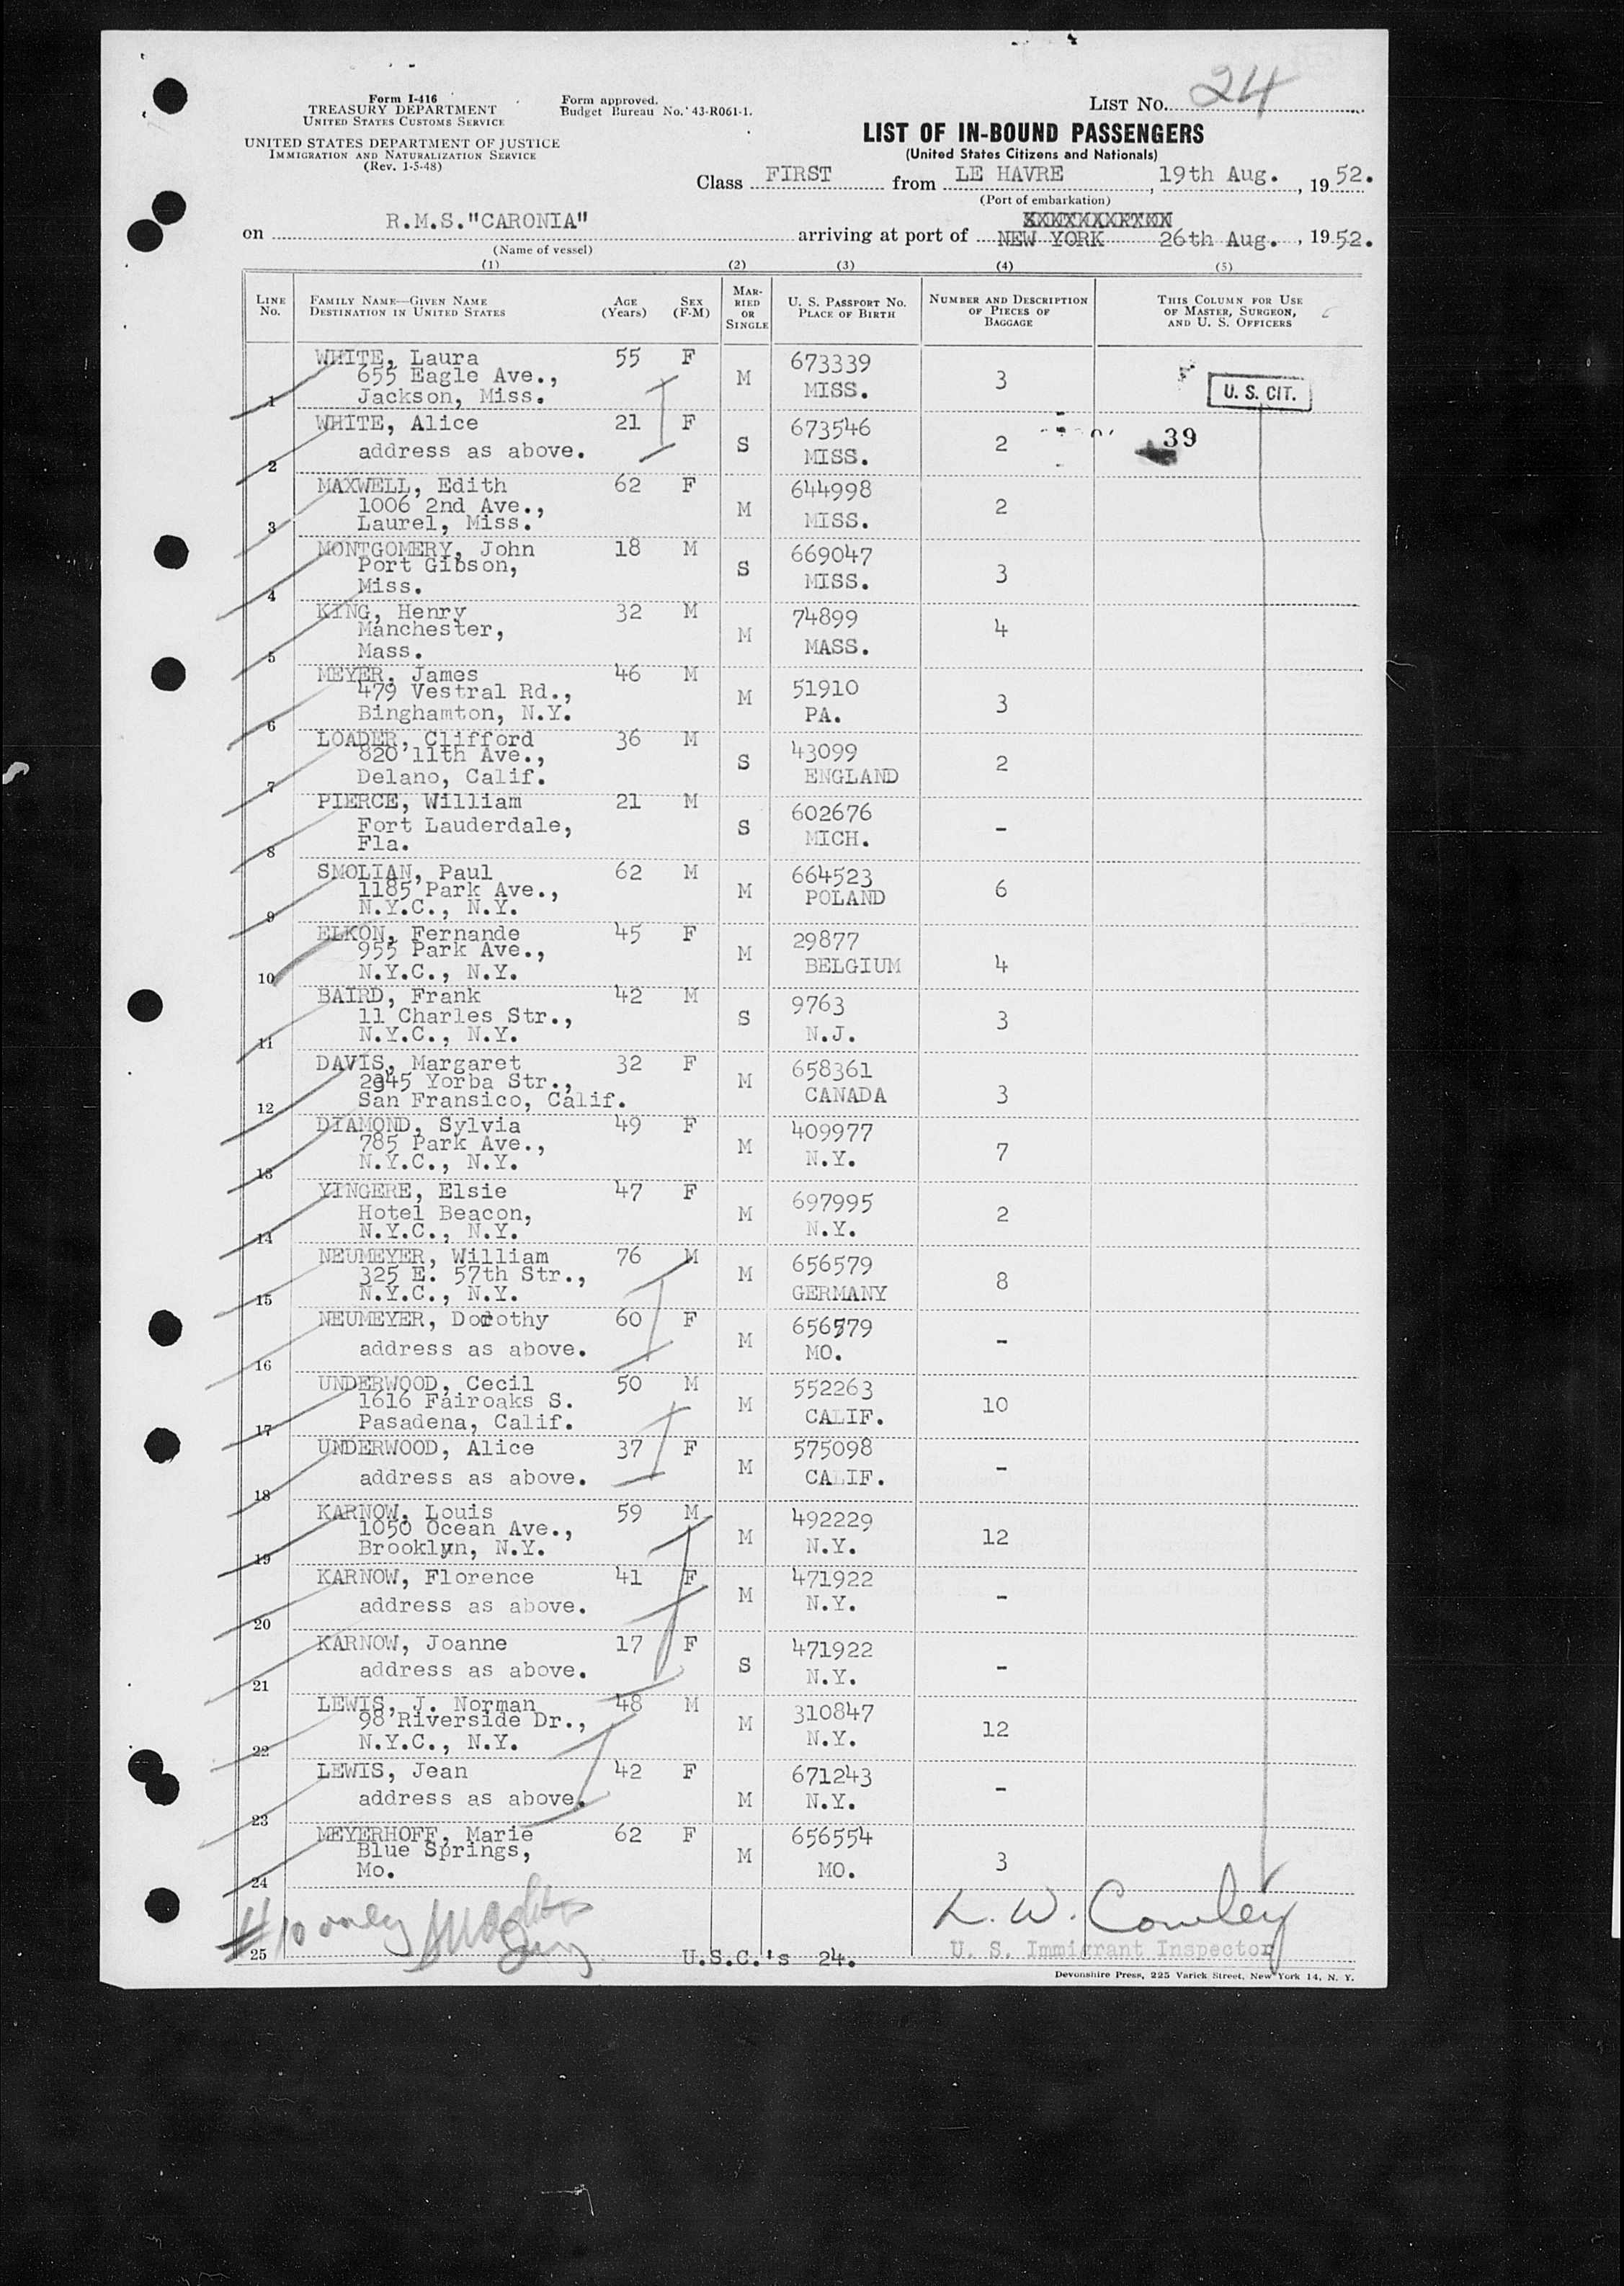 Form I-416
TREASURY DEPARTMENT
UNITED STATES CUSTOMS SERVICE
UNITED STATES DEPARTMENT OF JUSTICE
IMMIGRATION AND NATURALIZATION SERVICE
(Rev. 1-5-48)
Form approved.
Budget Bureau No. 43-R061-1.
LIST NO. 24
LIST OF IN-BOUND PASSENGERS
(United States Citizens and Nationals)
Class FIRST from LE HAVRE, 19th Aug., 1952.
(Port of embarkation)
on R.M.S."CARONIA" arriving at port of NEW YORK 26th Aug., 1952.
(Name of vessel)
(1) (2) (3) (4) (5)
LINE NO. FAMILY NAME—GIVEN NAME DESTINATION IN UNITED STATES AGE (Years) SEX (F-M) MARRIED OR SINGLE U. S. PASSPORT NO. PLACE OF BIRTH NUMBER AND DESCRIPTION OF PIECES OF BAGGAGE THIS COLUMN FOR USE OF MASTER, SURGEON, AND U. S. OFFICERS
1 WHITE, Laura 55 F M 673339 3
655 Eagle Ave., MISS. U. S. CIT.
Jackson, Miss.
2 WHITE, Alice 21 F S 673546 2 39
address as above. MISS.
3 MAXWELL, Edith 62 F M 644998 2
1006 2nd Ave., MISS.
Laurel, Miss.
4 MONTGOMERY, John 18 M S 669047 3
Port Gibson, MISS.
Miss.
5 KING, Henry 32 M M 74899 4
Manchester, MASS.
Mass.
6 MEYER, James 46 M M 51910 3
479 Vestral Rd., PA.
Binghamton, N.Y.
7 LOADER, Clifford 36 M S 43099 2
820 11th Ave., ENGLAND
Delano, Calif.
8 PIERCE, William 21 M S 602676 -
Fort Lauderdale, MICH.
Fla.
9 SMOLIAN, Paul 62 M M 664523 6
1185 Park Ave., POLAND
N.Y.C., N.Y.
10 ELKON, Fernande 45 F M 29877 4
955 Park Ave., BELGIUM
N.Y.C., N.Y.
11 BAIRD, Frank 42 M S 9763 3
11 Charles Str., N.J.
N.Y.C., N.Y.
12 DAVIS, Margaret 32 F M 658361 3
2945 Yorba Str., CANADA
San Fransico, Calif.
13 DIAMOND, Sylvia 49 F M 409977 7
785 Park Ave., N.Y.
N.Y.C., N.Y.
14 YINGERE, Elsie 47 F M 697995 2
Hotel Beacon, N.Y.
N.Y.C., N.Y.
15 NEUMEYER, William 76 M M 656579 8
325 E. 57th Str., GERMANY
N.Y.C., N.Y.
16 NEUMEYER, Dorothy 60 F M 656579 -
address as above. MO.
17 UNDERWOOD, Cecil 50 M M 552263 10
1616 Fairoaks S. CALIF.
Pasadena, Calif.
18 UNDERWOOD, Alice 37 F M 575098 -
address as above. CALIF.
19 KARNOW, Louis 59 M M 492229 12
1050 Ocean Ave., N.Y.
Brooklyn, N.Y.
20 KARNOW, Florence 41 F M 471922 -
address as above. N.Y.
21 KARNOW, Joanne 17 F S 471922 -
address as above. N.Y.
22 LEWIS, J. Norman 48 M M 310847 12
98 Riverside Dr., N.Y.
N.Y.C., N.Y.
23 LEWIS, Jean 42 F M 671243 -
address as above. N.Y.
24 MEYERHOFF, Marie 62 F M 656554 3
Blue Springs, MO.
Mo.
# 10 only
L. W. Cowley
25 U.S.C.'s 24. U. S. Immigrant Inspector
Devonshire Press, 225 Varick Street, New York 14, N. Y.